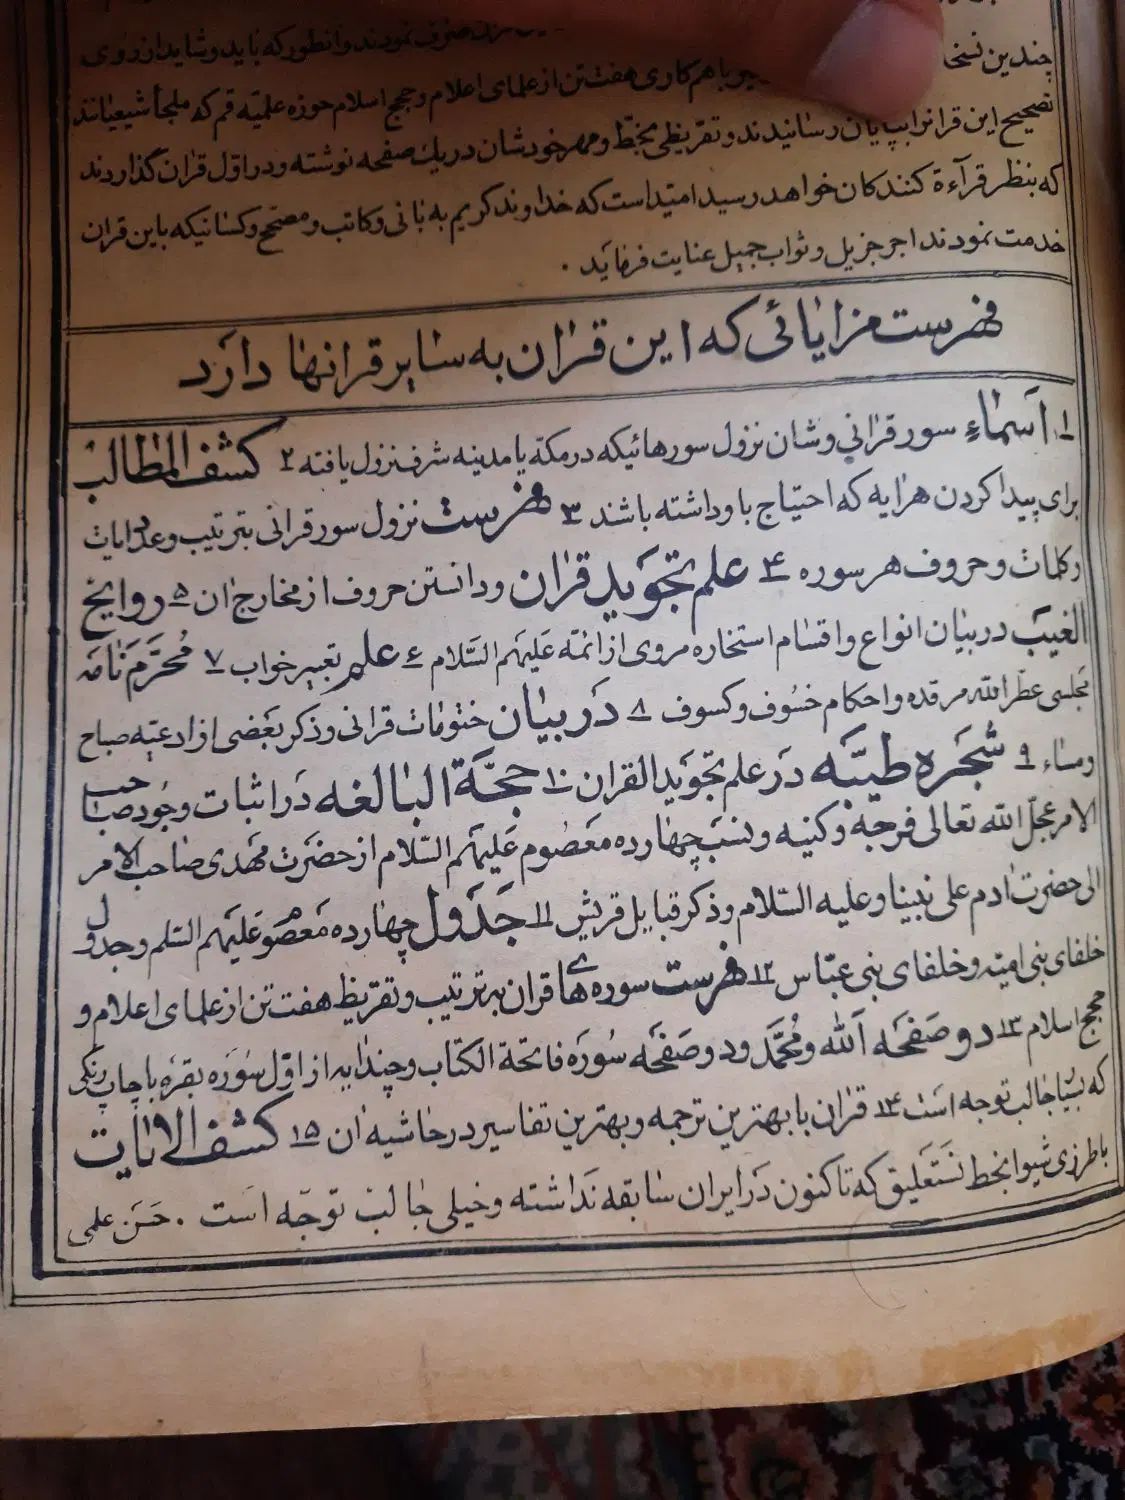 صرف نمودند وانطور که باید و شاید از روی
چندین نسخ با هم کاری هفت تن از علمای اعلام و حجج اسلام حوزه علمیّه قم که ملجأ شیعیانند
تصحیح این قرانرا بپایان رسانیدند و تقریظی بخطّ و مهر خودشان در یك صفحه نوشته و در اوّل قران گذاردند
که بنظر قرآءة کنندکان خواهد رسید امیّد است که خداوند کریم به بانی وکاتب و مصحّح وکسانیکه باین قران
خدمت نمودند اجر جزیل و ثواب جمیل عنایت فرماید .
فهرست مزایائی که این قران به سایر قرانها دارد
۱ اَسمآءِ سور قرانی وشان نزول سورهائیکه در مکة یا مدینه شرف نزول یافته ۲ کشف المطالب
برای پیدا کردن هرایه که احتیاج باو داشته باشند ۳ فهرست نزول سور قرانی بترتیب وعدد ایات
وکلمات و حروف هر سوره ۴ علم تجوید قران ودانستن حروف از مخارج ان ۵ روایح
الغیب در بیان انواع واقسام استخاره مروی از ائمّه عَلَیهم السَّلام ۶ علم تعبیر خواب ۷ مُحَرَّم نامه
مجلسی عطّر الله مرقده و احکام خسُوف وکسوف ۸ دَر بیان ختومات قرانی وذکر بَعضی از ادعیّه صباح
ومساء ۹ شَجَره طیبّه دَر علم تجوید القران ۱۰ حجّة البالغه دَر اثبات وجود صاحب
الامر عجّل الله تعالی فرجه وکنیه ونسب چهارده معصُوم عَلَیهم السّلام از حضرت مهدی صاحب الامر
الی حضرت ادم علی نبینا وعلیه السّلام وذکر قبایل قریش ۱۱ جَدوَل چهارده مَعصُوم عَلَیهم السّلم وجدول
خلفای بنی امیّه وخلفای بنی عبّاس ۱۲ فهرست سوره های قران به ترتیب و تقریظ هفت تن از علمای اعلام و
حجج اسلام ۱۳ دو صَفحَه اَلله ومُحمَّد و دو صَفحَه سُورَه فاتحَة الکتاب وچند ایه از اوّل سُورَه بقرَه با چاپ رنگی
که بسیار جالب توجه است ۱۴ قران با بهترین ترجمه و بهترین تفاسیر در حاشیه ان ۱۵ کشف الایات
با طرزی شیوا بخط نَستَعلیق که تاکنون دَر ایران سابقه نداشته وخیلی جالب توجّه است . حَسَن علمی